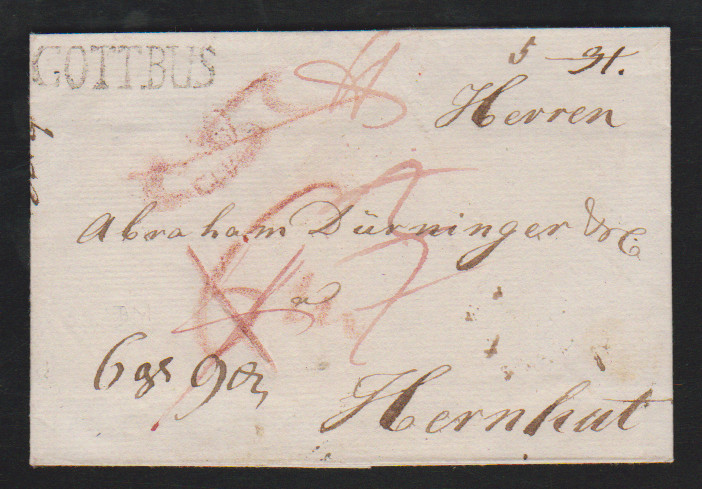 COTTBUS
5 31.
Herren
Abraham Dürninger & C.
a
Hernhut